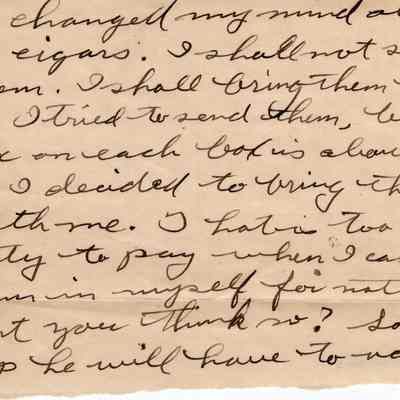 changed my mind a
cigars. I shall not s
em. I shall bring them
I tried to send them, b
x on each box is abou
I decided to bring th
th me. I hat is too
ty to pay when I ca
in myself for not
t you think so? So
he will have to